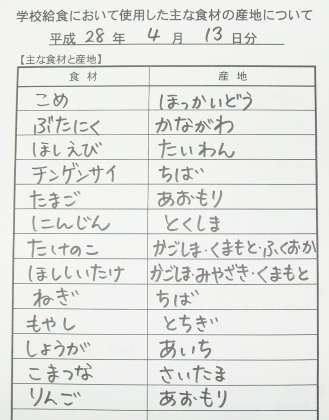 学校給食において使用した主な食材の産地について
平成 28 年 4 月 13 日分
【主な食材と産地】
食材 産地
こめ ほっかいどう
ぶたにく かながわ
ほしえび たいわん
チンゲンサイ ちば
たまご あおもり
にんじん とくしま
たけのこ かごしま・くまもと・ふくおか
ほししいたけ かごしま・みやざき・くまもと
ねぎ ちば
もやし とちぎ
しょうが あいち
こまつな さいたま
りんご あおもり